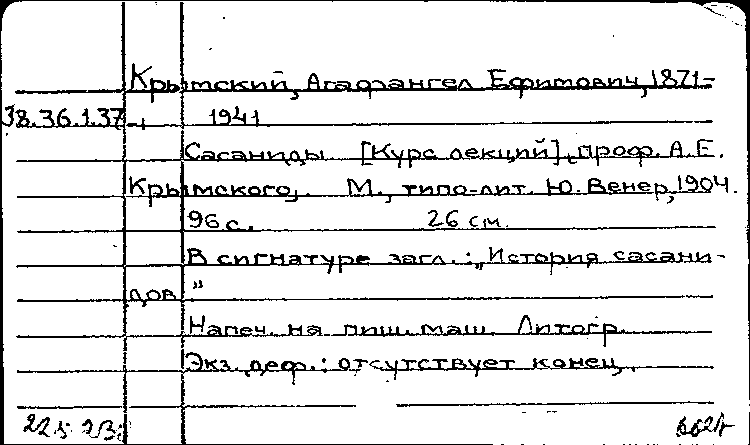 Крымский, Агафангел Ефимович, 1871-
38.36.1.37 1941
Сасаниды. [Курс лекций], проф. А.Е.
Крымского. М., типо-лит. Ю. Венер, 1904.
96 с. 26 см.
В сигнатуре загл.: „История сасани-
дов"
Напеч. на пиш. маш. Литогр.
Экз. деф.: отсутствует конец.